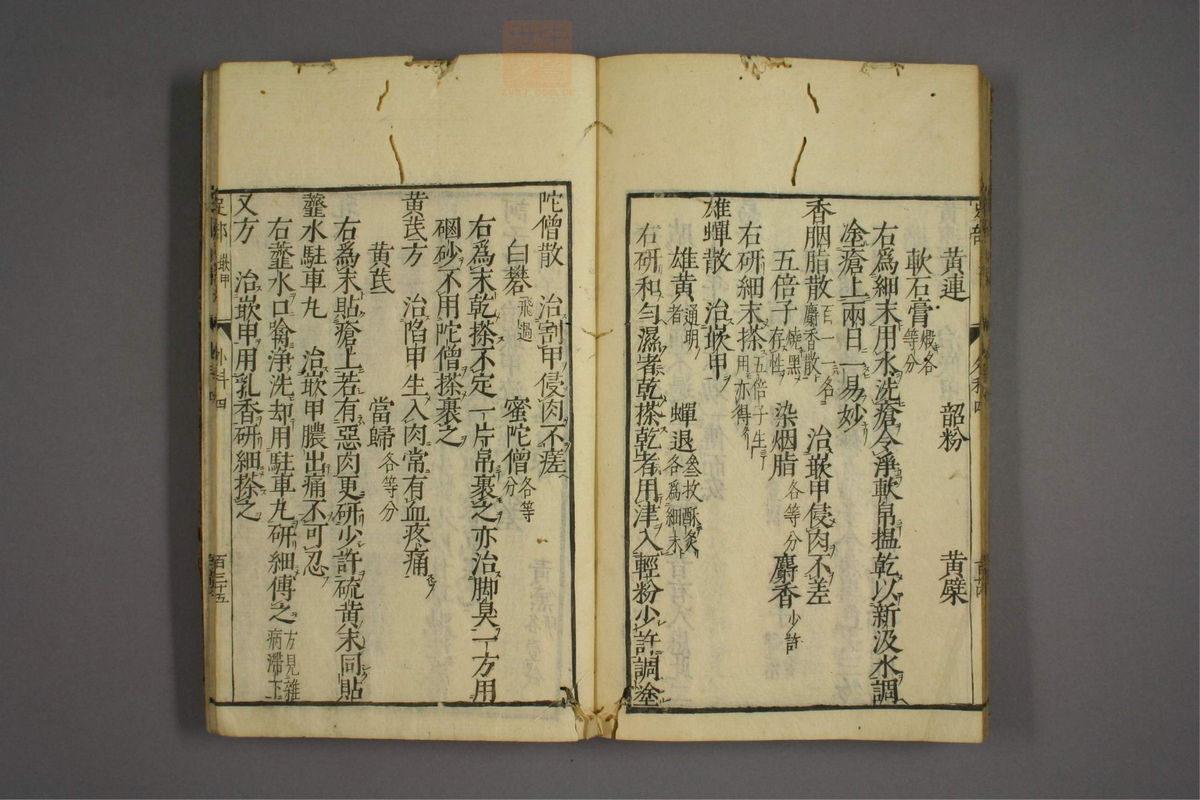 黄連 韶粉 黄檗
軟石膏煅各等分
右爲細末用水洗瘡令淨軟帛搵乾以新汲水調
塗瘡上兩日一易妙
香胭脂散一名麝香散 治嵌甲侵肉不差
五倍子燒黑存性 染烟脂各等分 麝香少許
右研細末搽五倍子生用亦得
雄蟬散 治嵌甲
雄黄通明者 蟬退叁枚酥炙各爲細末
右研和勻濕者乾搽乾者用津入輕粉少許調塗
陀僧散 治割甲侵肉不瘥
白礬飛過 蜜陀僧各等分
右爲末乾搽不定一片帛裹之亦治脚臭一方用
硇砂不用陀僧搽裹之
黄芪方 治陷甲生入肉常有血疼痛
黄芪 當歸各等分
右爲末貼瘡上若有惡肉更研少許硫黄末同貼
虀水駐車丸 治嵌甲膿出痛不可忍
右虀水口噙淨洗却用駐車丸研細傅之方見雜病滯下
又方 治嵌甲用乳香研細搽之
足部 嵌甲 外科四 百三十五